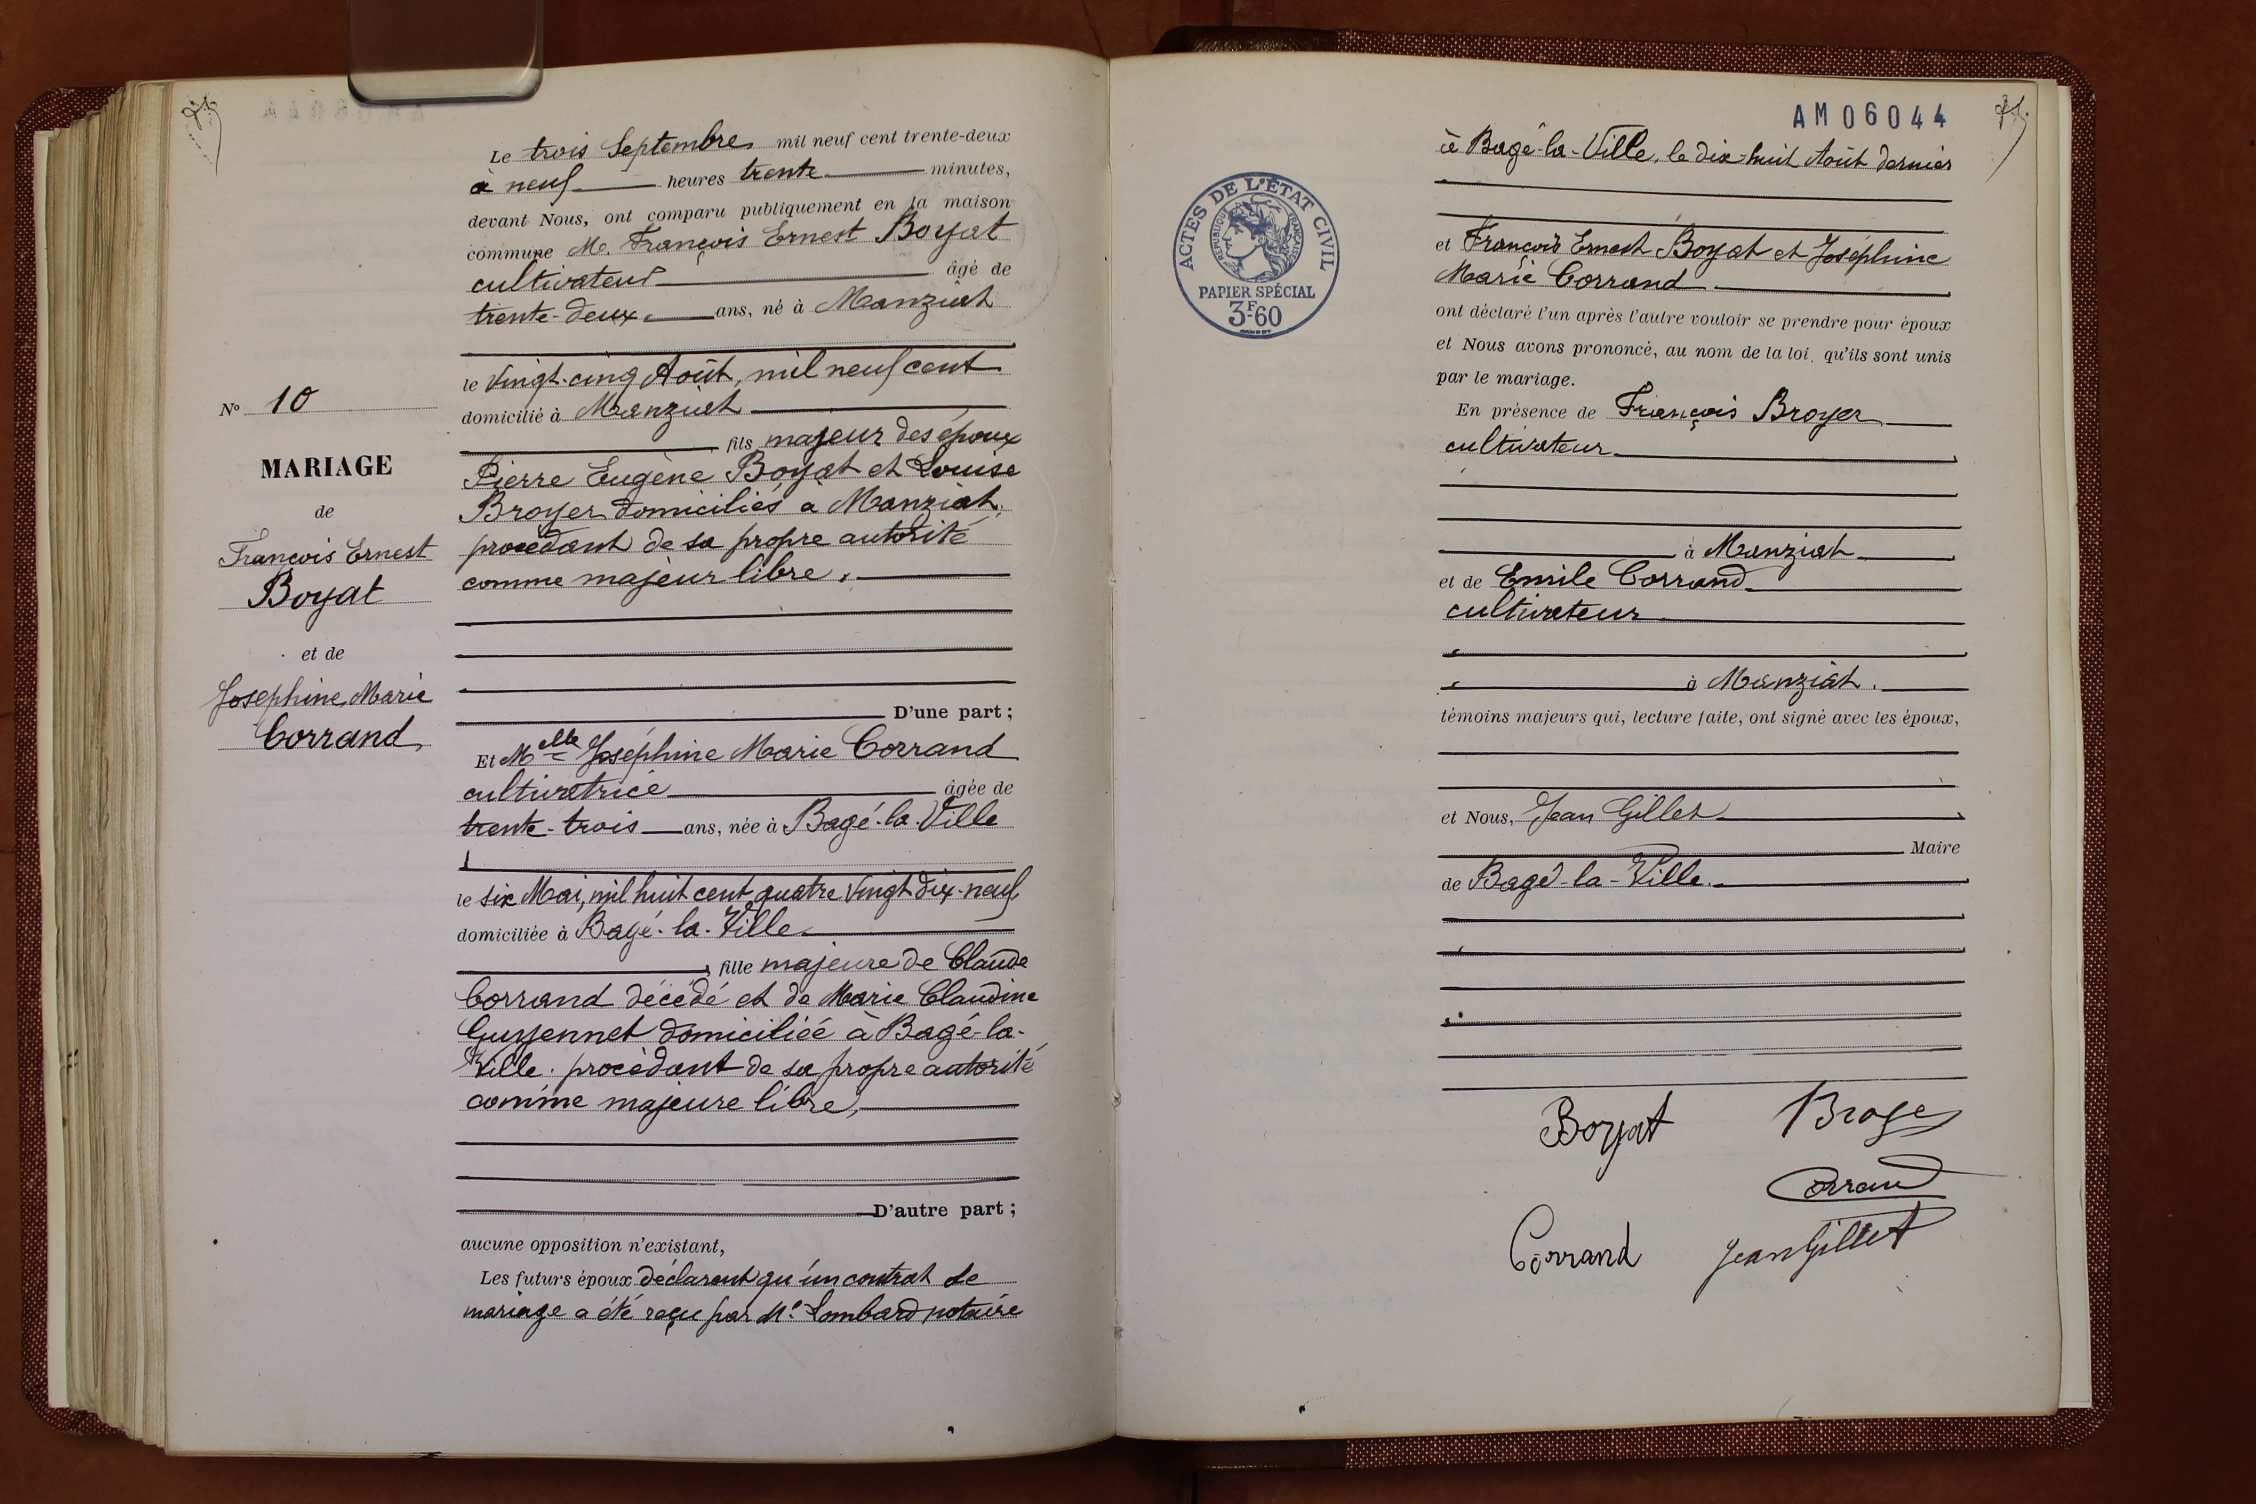 Le trois Septembre mil neuf cent trente-deux
à neuf heures trente minutes,
devant Nous, ont comparu publiquement en la maison
commune M. François Ernest Boyat
cultivateur âgé de
trente-deux ans, né à Manziat
le vingt-cinq Août, mil neuf cent
domicilié à Manziat
fils majeur des époux
Pierre Eugène Boyat et Louise
Broyer domiciliés à Manziat,
procédant de sa propre autorité
comme majeur libre.
D'une part ;
Et Melle Joséphine Marie Corrand
cultivatrice âgée de
trente-trois ans, née à Bagé-la-Ville
le six Mai, mil huit cent quatre vingt dix-neuf
domiciliée à Bagé-la-Ville
, fille majeure de Claude
Corrand décédé et de Marie Claudine
Guyennet domiciliée à Bagé-la-
Ville. procédant de sa propre autorité
comme majeure libre,
D'autre part ;
aucune opposition n'existant,
Les futurs époux déclarent qu'un contrat de
mariage a été reçu par Me Lombard notaire
No 10
MARIAGE
de
François Ernest
Boyat
et de
Joséphine Marie
Corrand
AM06044
à Bagé-la-Ville, le dix-huit Août dernier
et François Ernest Boyat et Joséphine
Marie Corrand
ont déclaré l'un après l'autre vouloir se prendre pour époux
et Nous avons prononcé, au nom de la loi, qu'ils sont unis
par le mariage.
En présence de François Broyer
cultivateur
à Manziat
et de Emile Corrand
cultivateur
à Manziat.
témoins majeurs qui, lecture faite, ont signé avec les époux,
et Nous, Jean Gillet
Maire
de Bagé-la-Ville.
Boyat Broyer
Corrand
Corrand Jean Gillet
ACTES DE L'ÉTAT CIVIL
RÉPUBLIQUE FRANÇAISE
PAPIER SPÉCIAL
3F-60